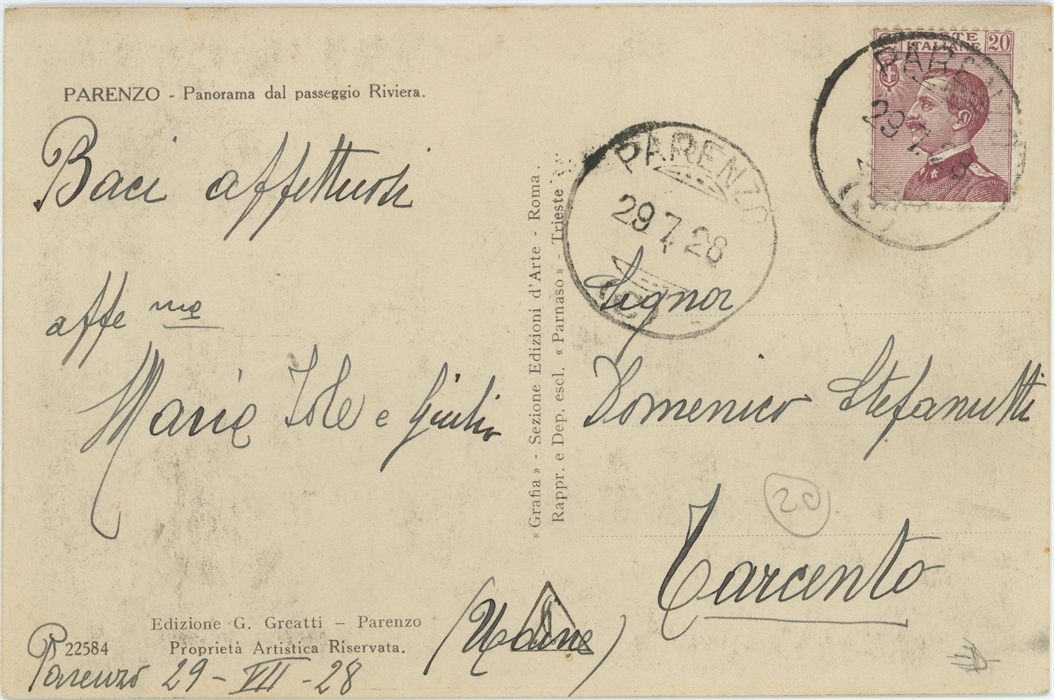 PARENZO - Panorama dal passeggio Riviera.
Baci affettuosi
affe ma
Maria Iole e Giulio
Edizione G. Greatti – Parenzo
22584 Proprietà Artistica Riservata.
Parenzo 29 - VII - 28
« Grafia » - Sezione Edizioni d'Arte - Roma
Rappr. e Dep. escl. « Parnaso » - Trieste
POSTE ITALIANE 20
PARENZO
29.7.28
PARENZO
29 7 28
Signor
Domenico Stefanutti
20
Tarcento
(Udine)